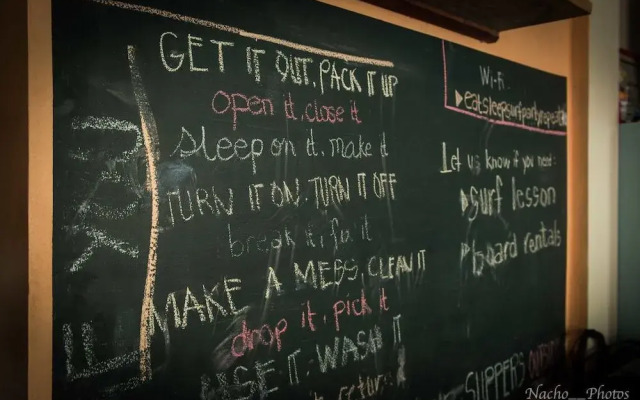 IF YOU
GET IT OUT, PACK IT UP
open it, close it
sleep on it, make it
TURN IN ON. TURN IT OFF
break it, fix it
MAKE A MESS, CLEAN IT
drop it, pick it
USE IT. WASH IT
it
Wi-Fi
eatsleepsurfpartyrepeat
Let us know if you need:
surf lesson
board rentals
SLIPPERS
Nacho__Photos